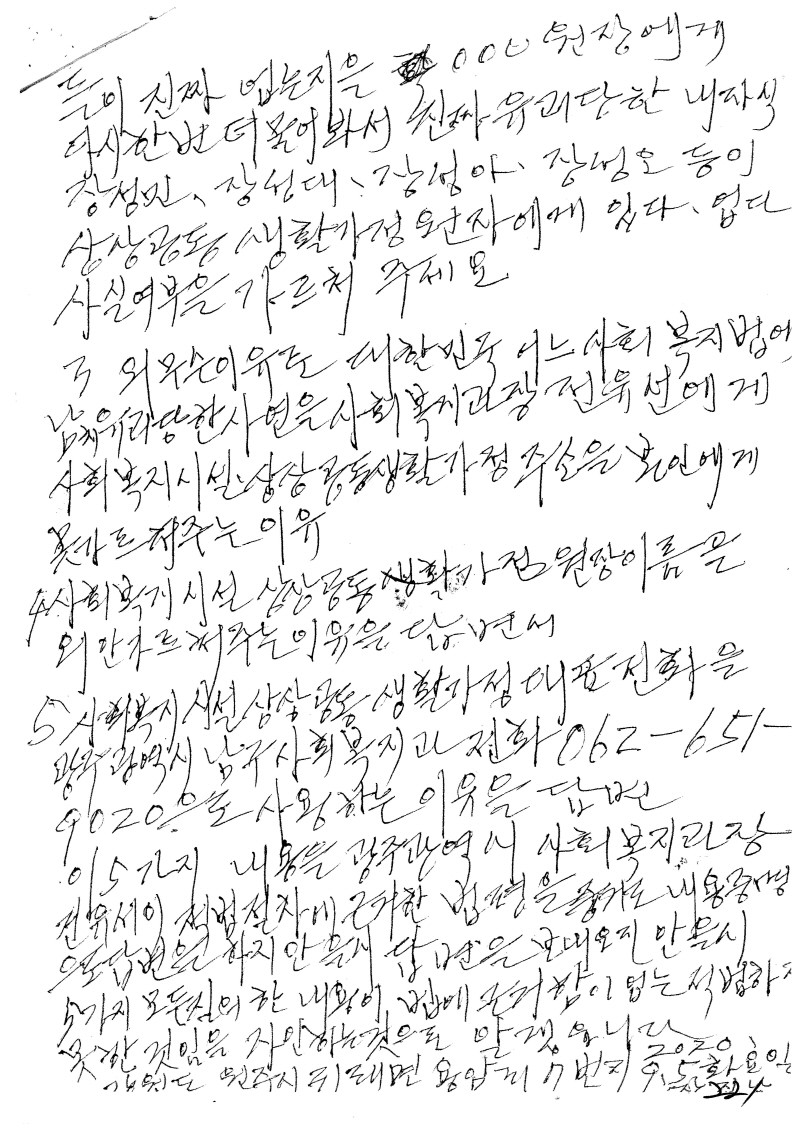 들이 진짜 업는지을 000 원장에게
다시한번 더 물어봐서 진짜 유괴당한 내자식
장성민、장성대、장성아、장성오 등이
상상공동 생활가정 원장에게 있다、업다
사실여부을 가르쳐 주세요
3 외 무슨이유로 대한민국 어느 사회 복지법에
납치유괴당한사연을 사회복지과장 전유선에게
사회복지시설 상상공동생활가정 주소을 본인에게
못가르쳐주는 이유
4 사회복지시설 상상공동 생활가정 원장이름은
외 안가르쳐주는이유을 답변서
5 사회복지시설 상상공동 생활가정 대표전화을
광주광역시 남구사회복지과 전화 062-651-
9020으로 사용하는 이유을 답변
이 5가지 내용을 광주광역시 사회복지과장
적법절차에 근거한 법령을 내용증명
으로 답변을 하지안을시 답변을 보내오지 안을시
5가지 모든질의한 내용이 법에 근거함이 없는 적법하지
못한것임을 자인하는것으로 알겟읍니다
강원도 원주시 귀래면 용암리 7번지 2020